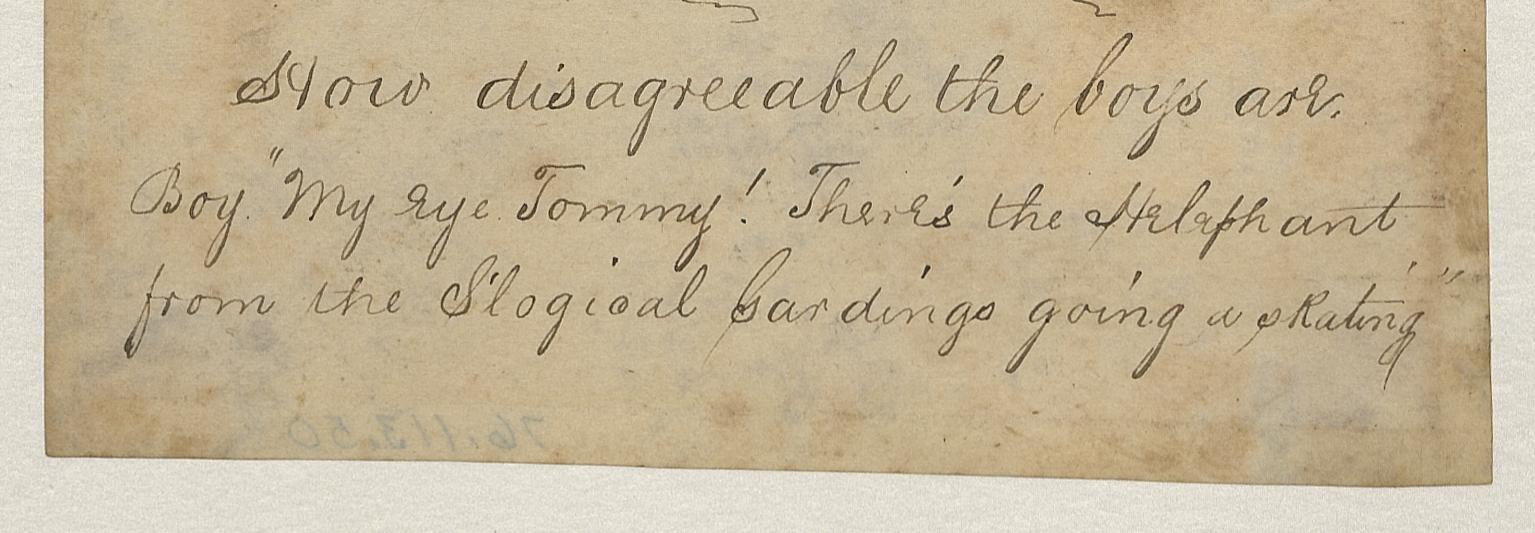 How disagreeable the boys are.
Boy. "My eye Tommy! There's the Helephant
from the S'logical Gardings going a skating"
76.113.50